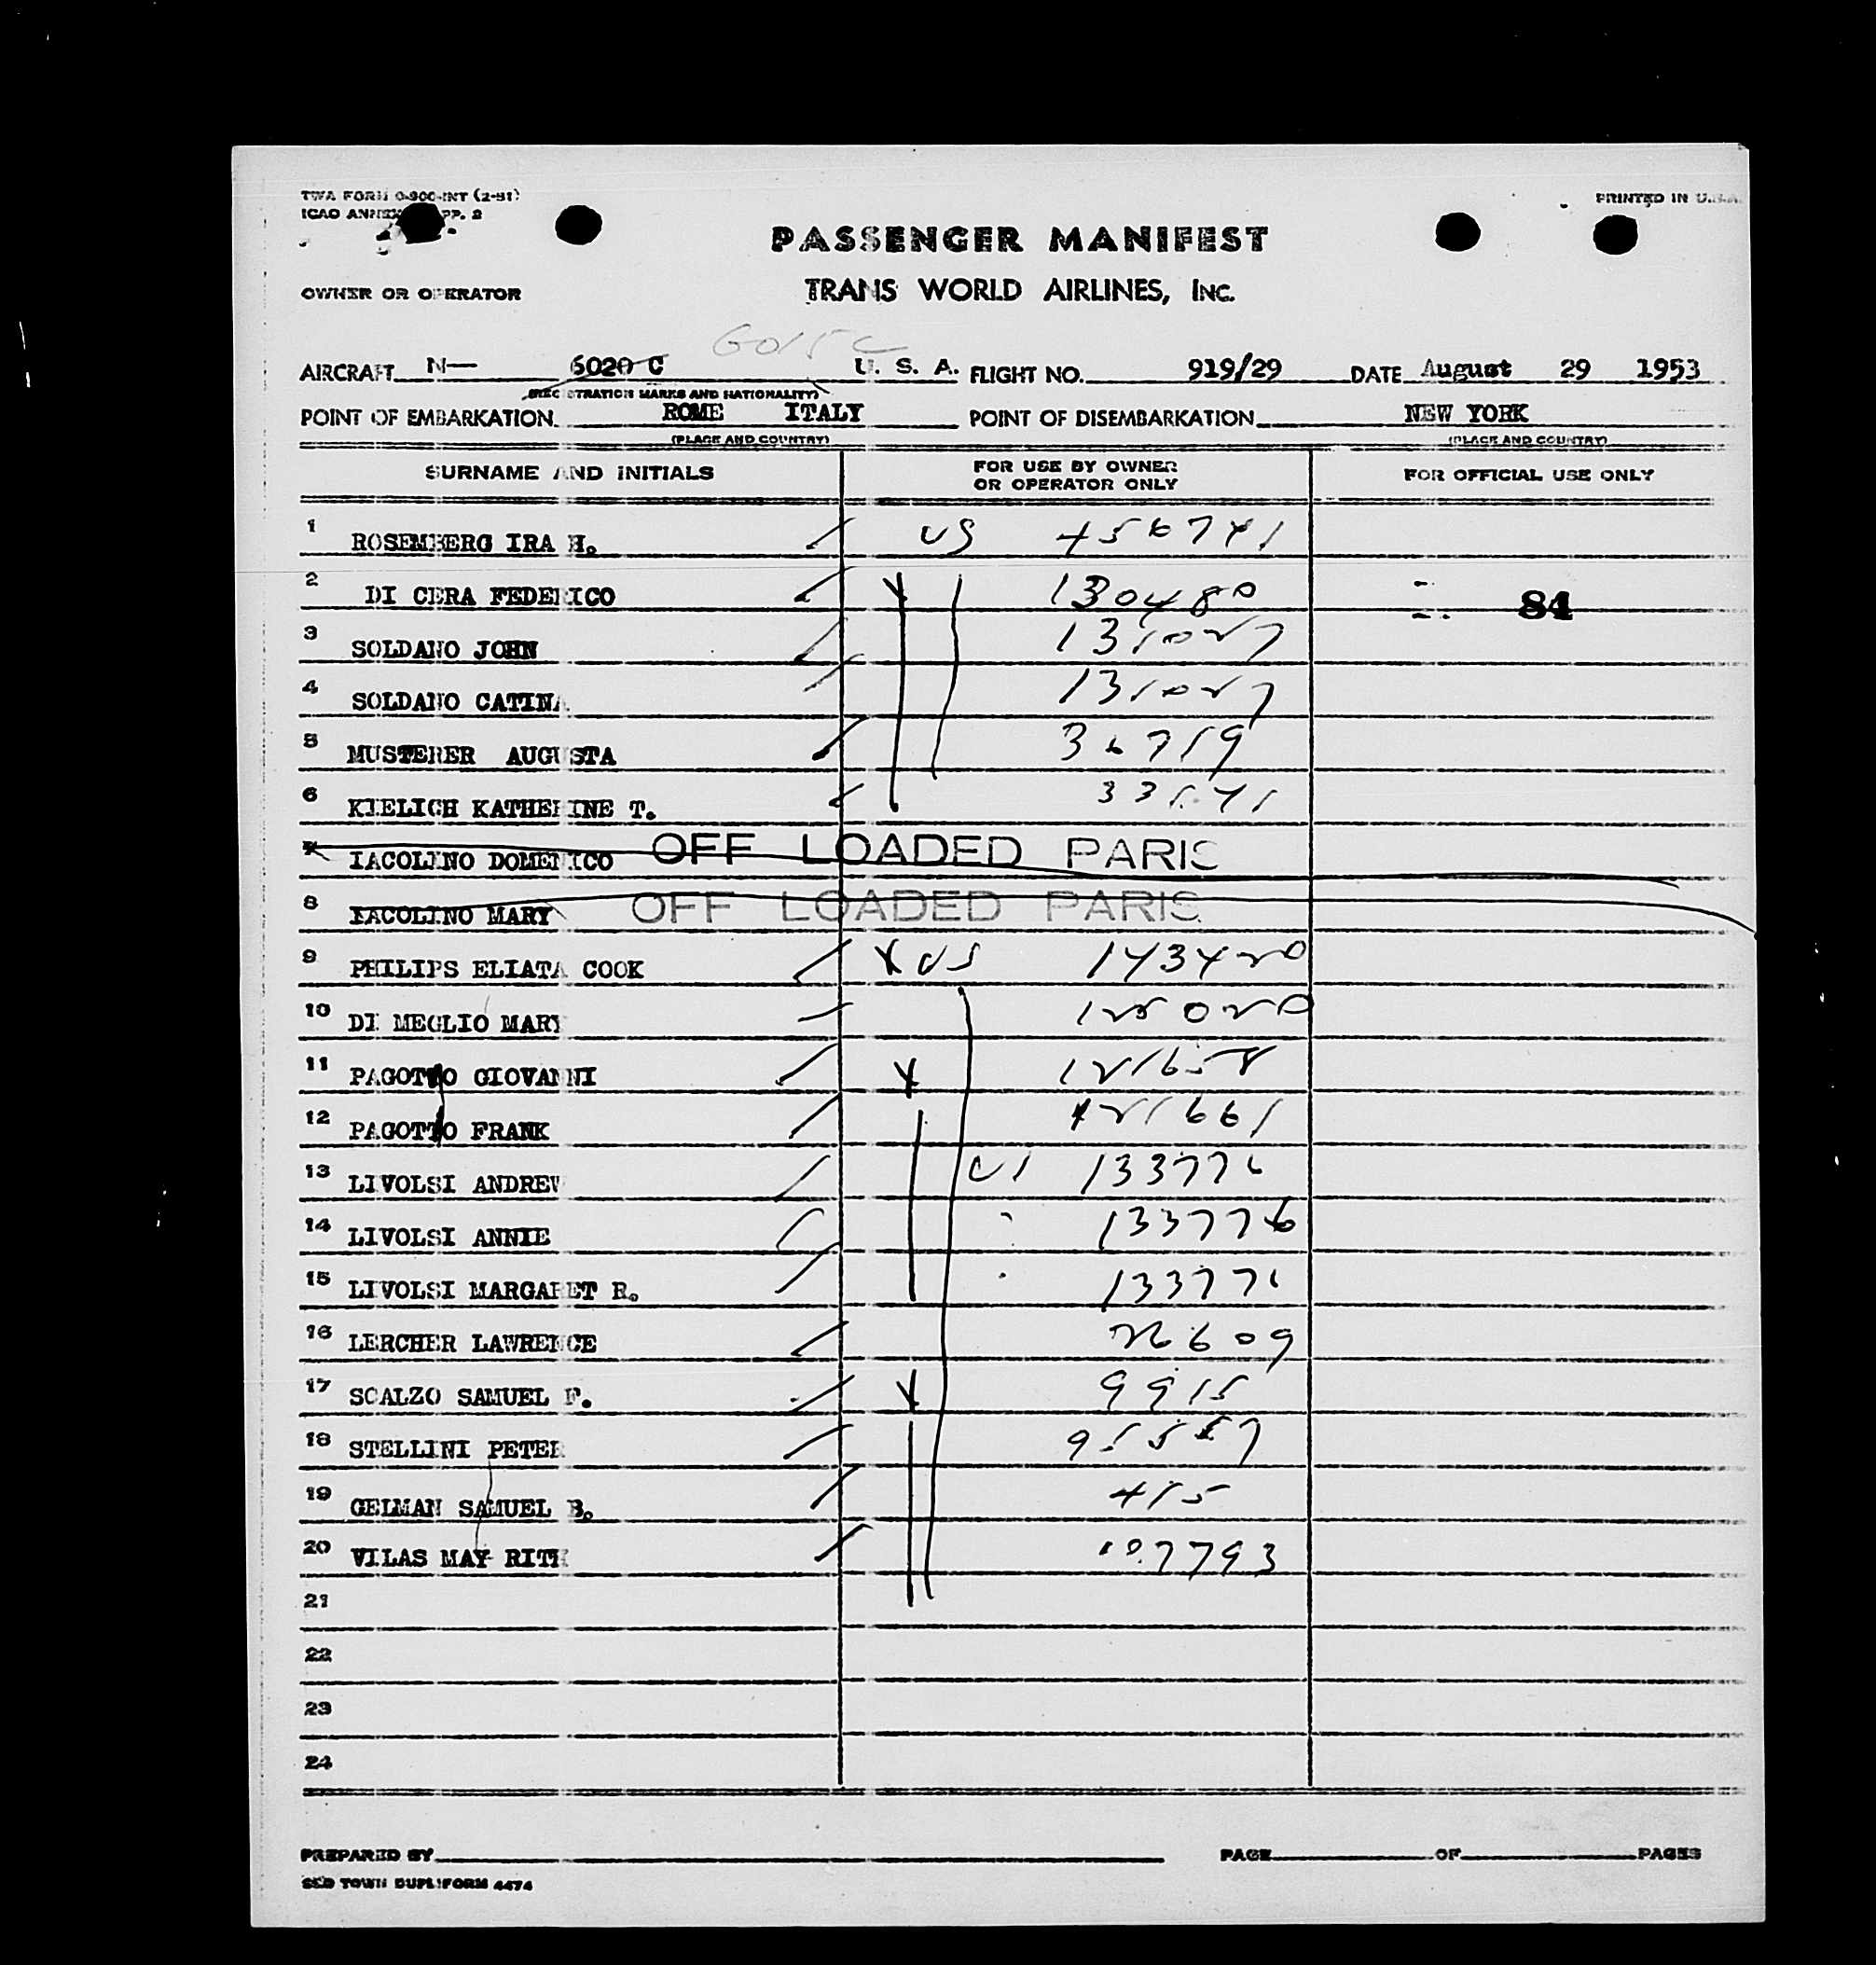 TWA FORM 0-900-INT (2-51)
ICAO ANNEX PP. 2
PRINTED IN U.S.A.
PASSENGER MANIFEST
OWNER OR OPERATOR
TRANS WORLD AIRLINES, INC.
6015 C
AIRCRAFT N— 6020 C U. S. A. FLIGHT NO. 919/29 DATE August 29 1953
(REGISTRATION MARKS AND NATIONALITY)
POINT OF EMBARKATION ROME ITALY POINT OF DISEMBARKATION NEW YORK
(PLACE AND COUNTRY) (PLACE AND COUNTRY)
SURNAME AND INITIALS FOR USE BY OWNER OR OPERATOR ONLY FOR OFFICIAL USE ONLY
1 ROSEMBERG IRA H. US 456741
2 DI CERA FEDERICO 130480 84
3 SOLDANO JOHN 131027
4 SOLDANO CATINA 131027
5 MUSTERER AUGUSTA 36719
6 KIELICH KATHERINE T.
7 IACOLINO DOMENICO OFF LOADED PARIS
8 IACOLINO MARY OFF LOADED PARIS
9 PHILIPS ELIATA COOK X US 143420
10 DI MEGLIO MARY 125020
11 PAGOTTO GIOVANNI X 121658
12 PAGOTTO FRANK 121661
13 LIVOLSI ANDREW US 133776
14 LIVOLSI ANNIE 133776
15 LIVOLSI MARGARET R. 133776
16 LERCHER LAWRENCE 26609
17 SCALZO SAMUEL F. X 9915
18 STELLINI PETER 95557
19 GELMAN SAMUEL B. 415
20 VILAS MAY RITH 107793
21
22
23
24
PREPARED BY PAGE OF PAGES
SED TOWN DUPLIFORM 4474